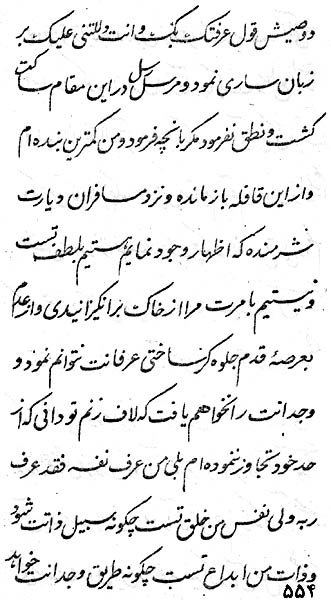 دوصیتش قول عرفتک بک و انت دللتنی علیک بر
زبان ساری نمود و مرسل رسل در این مقام ساکت
گشت و نطق نفرمود مکر بانچه فرمود و من کمترین بنده ام
و از این قافله بازمانده و نزد مسافران دیارت
شرمنده که اظهار وجود نمایم هستیم بلطف تست
و نیستیم بامرت مرا از خاک برانگیزانیدی و از عدم
بعرصهٔ قدم جلوه گر ساختی عرفانت نتوانم نمود و
وجدانت را نخواهم یافت که لاف زنم تو دانی که از
حد خود تجاوز ننموده ام بلی من عرف نفسه فقد عرف
ربه ولی نفس من خلق تست چگونه سبیل ذاتت شود
و ذات من ابداع تست چگونه طریق وجدانت خواهد
۵۵۴